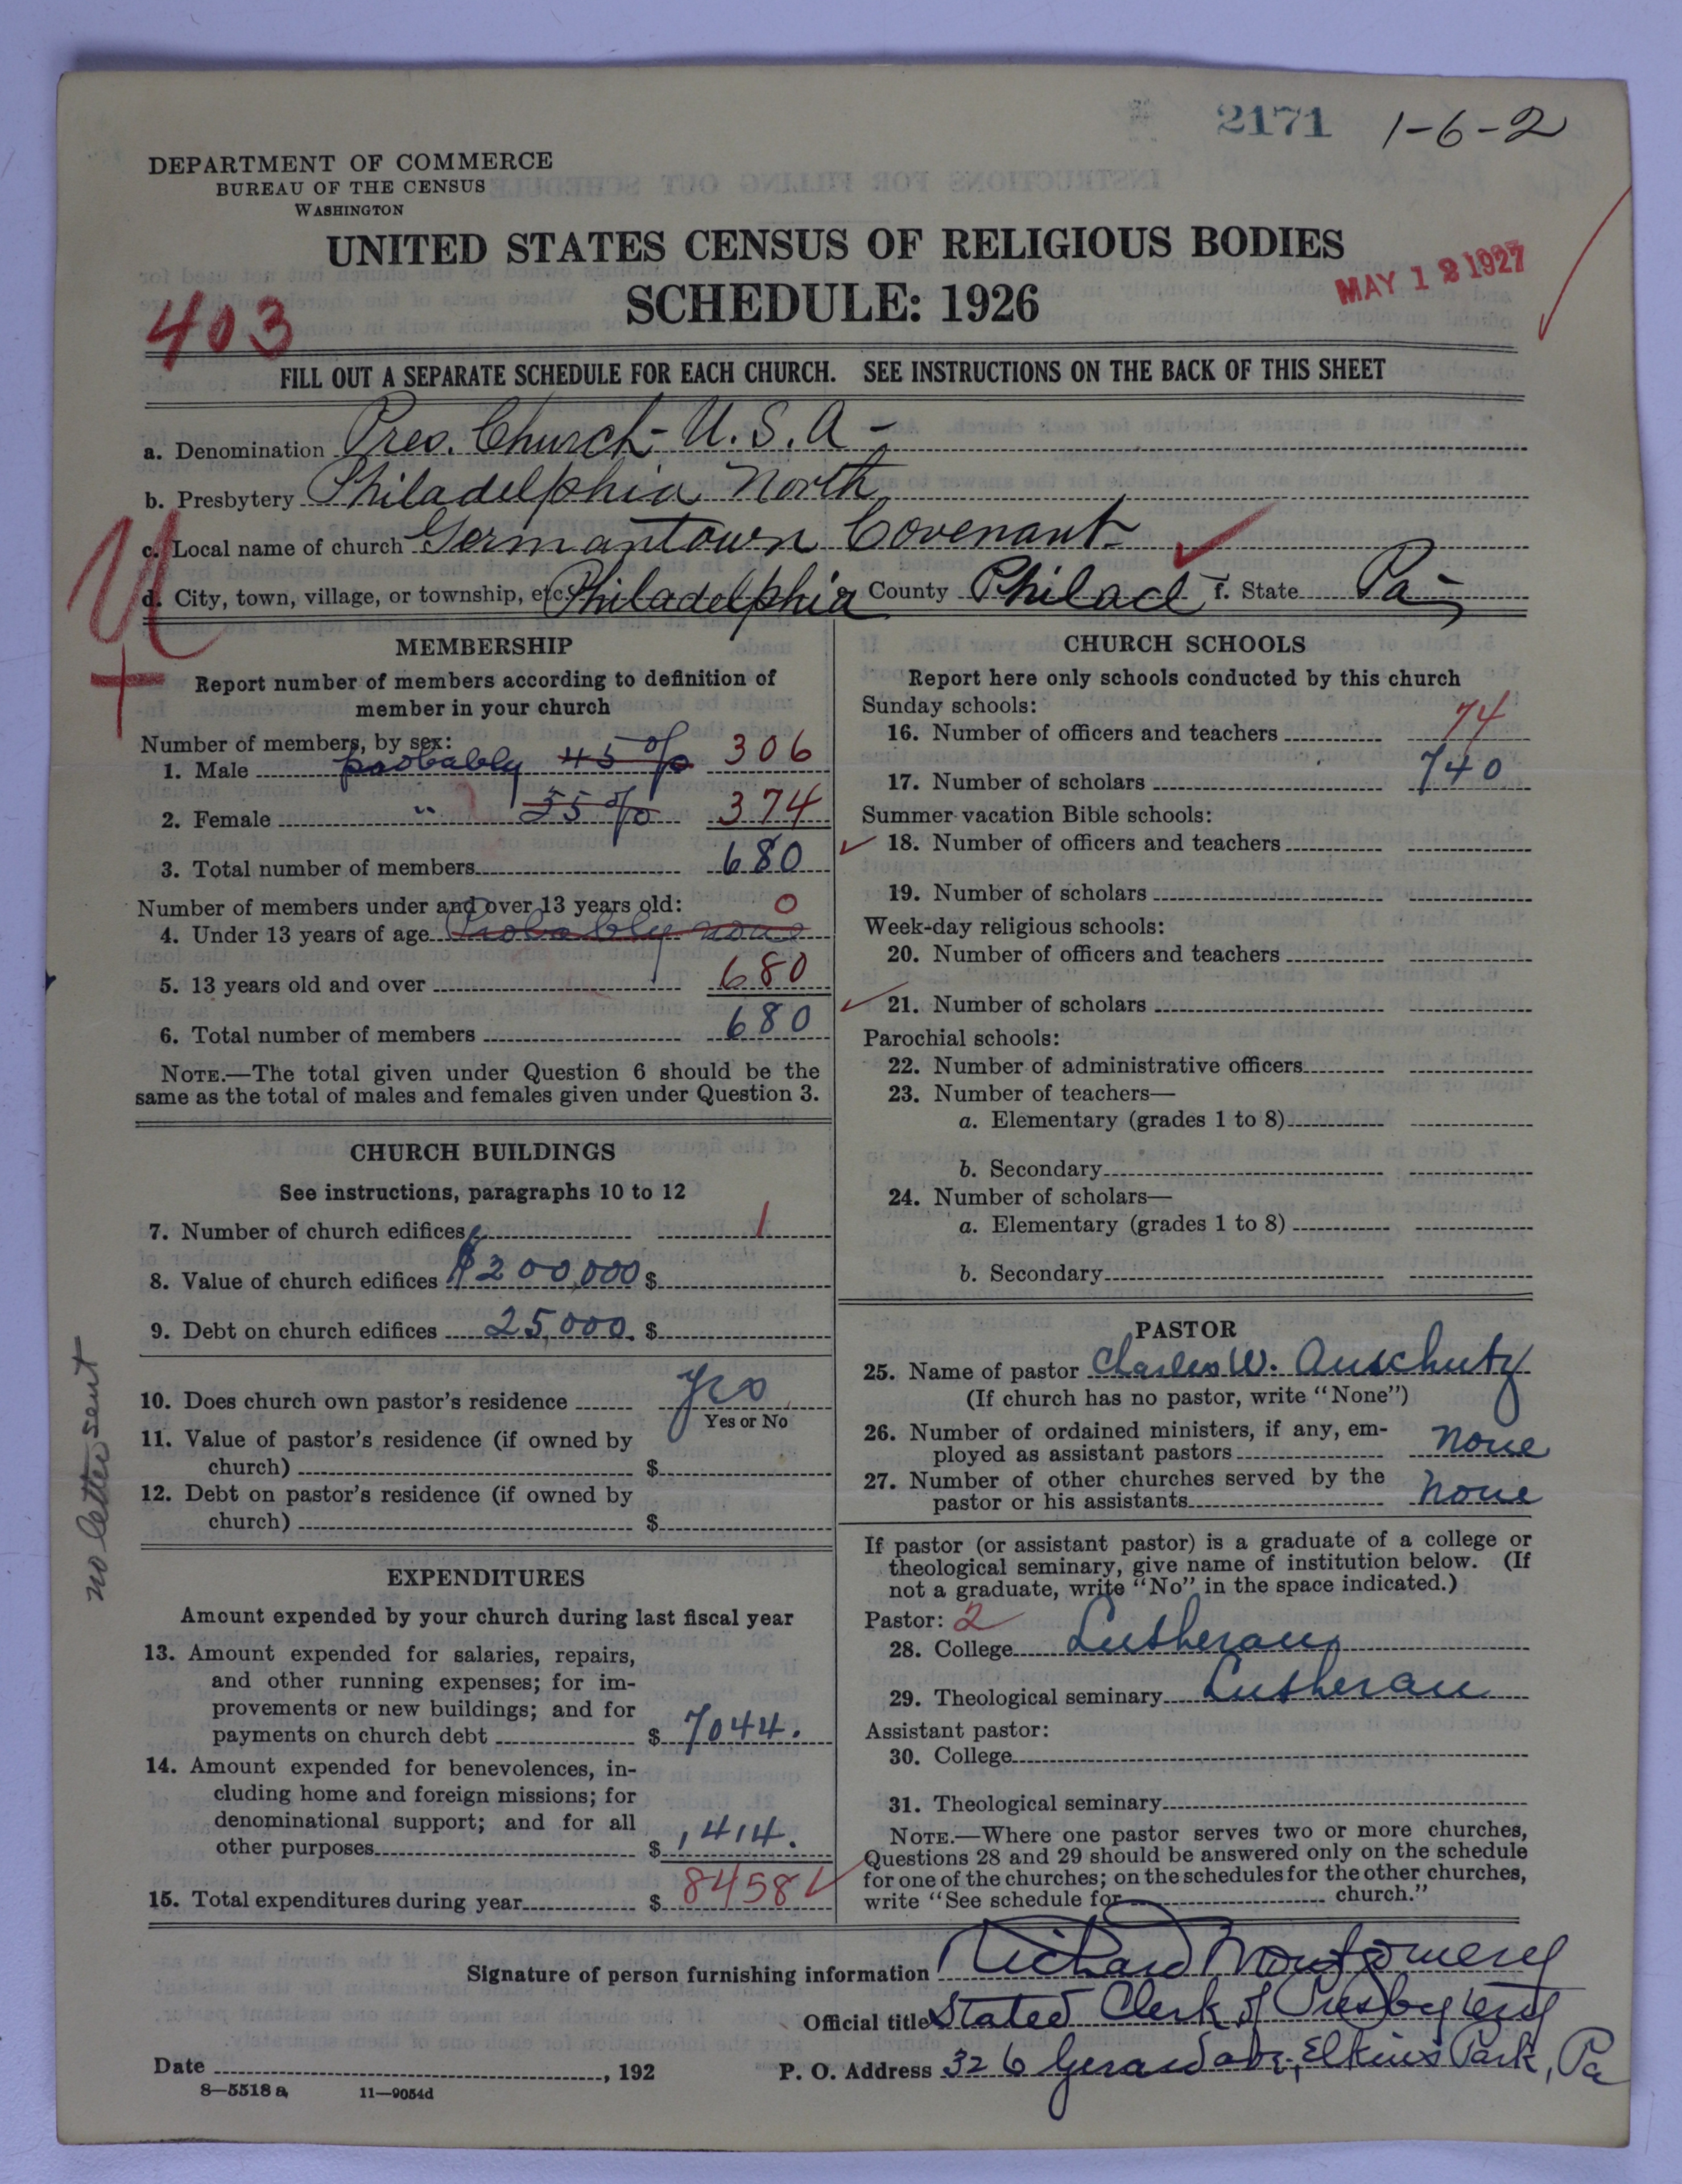 2171 1-6-2
DEPARTMENT OF COMMERCE
BUREAU OF THE CENSUS
WASHINGTON
UNITED STATES CENSUS OF RELIGIOUS BODIES
SCHEDULE: 1926
MAY 12 1927
403
FILL OUT A SEPARATE SCHEDULE FOR EACH CHURCH. SEE INSTRUCTIONS ON THE BACK OF THIS SHEET
a. Denomination Pres. Church - U.S.A -
b. Presbytery Philadelphia North
c. Local name of church Germantown Covenant
d. City, town, village, or township, etc. Philadelphia County Philad f. State Pa
MEMBERSHIP
Report number of members according to definition of
member in your church
Number of members, by sex:
1. Male probably 45% 306
2. Female " 55% 374
3. Total number of members 680
Number of members under and over 13 years old: 0
4. Under 13 years of age Probably none
5. 13 years old and over 680
6. Total number of members 680
NOTE.—The total given under Question 6 should be the
same as the total of males and females given under Question 3.
CHURCH BUILDINGS
See instructions, paragraphs 10 to 12
7. Number of church edifices 1
8. Value of church edifices $200,000 $
9. Debt on church edifices 25,000. $
10. Does church own pastor's residence yes
Yes or No
11. Value of pastor's residence (if owned by
church) $
12. Debt on pastor's residence (if owned by
church) $
no letter sent
EXPENDITURES
Amount expended by your church during last fiscal year
13. Amount expended for salaries, repairs,
and other running expenses; for im-
provements or new buildings; and for
payments on church debt $ 7044.
14. Amount expended for benevolences, in-
cluding home and foreign missions; for
denominational support; and for all
other purposes $ 1414.
15. Total expenditures during year $ 8458
CHURCH SCHOOLS
Report here only schools conducted by this church
Sunday schools:
16. Number of officers and teachers 74
17. Number of scholars 740
Summer vacation Bible schools:
18. Number of officers and teachers
19. Number of scholars
Week-day religious schools:
20. Number of officers and teachers
21. Number of scholars
Parochial schools:
22. Number of administrative officers
23. Number of teachers—
a. Elementary (grades 1 to 8)
b. Secondary
24. Number of scholars—
a. Elementary (grades 1 to 8)
b. Secondary
PASTOR
25. Name of pastor Charles W. Anschutz
(If church has no pastor, write "None")
26. Number of ordained ministers, if any, em-
ployed as assistant pastors none
27. Number of other churches served by the
pastor or his assistants none
If pastor (or assistant pastor) is a graduate of a college or
theological seminary, give name of institution below. (If
not a graduate, write "No" in the space indicated.)
Pastor: 2
28. College Lutheran
29. Theological seminary Lutheran
Assistant pastor:
30. College
31. Theological seminary
NOTE.—Where one pastor serves two or more churches,
Questions 28 and 29 should be answered only on the schedule
for one of the churches; on the schedules for the other churches,
write "See schedule for church."
Signature of person furnishing information Richard Montgomery
Official title Stated Clerk of Presbytery
Date , 192 P. O. Address 326 Gerard ave., Elkins Park, Pa
8—5518 a 11—9054d